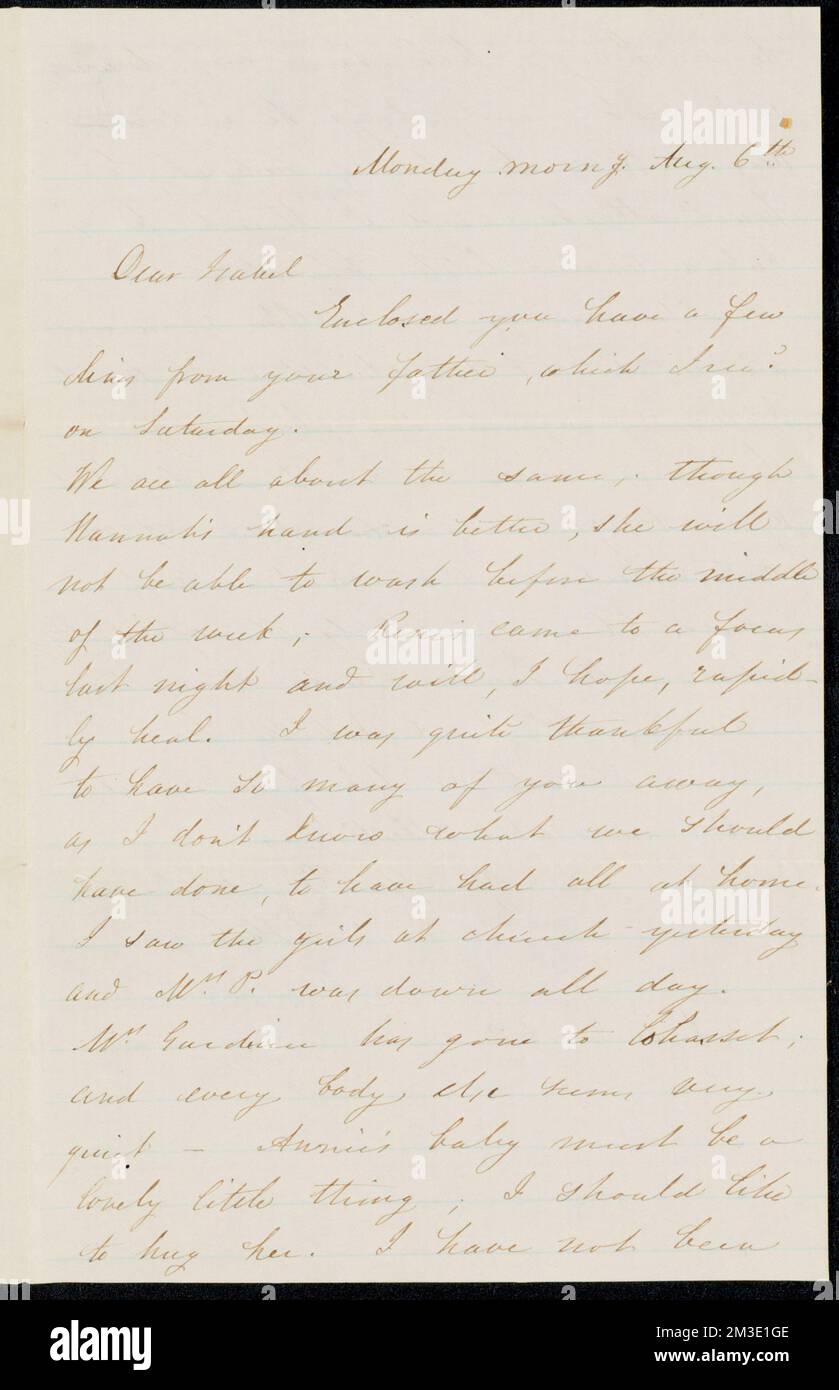 Monday morng. Aug. 6th
Dear Isabel
Enclosed you have a few
lines from your father, which I rec?
on Saturday.
We are all about the same, though
Hannah's hand is better, she will
not be able to wash before the middle
of the week; came to a focus
last night and will, I hope, rapid-
ly heal. I was quite thankful
to have so many of you away,
as I don't know what we should
have done, to have had all at home.
I saw the girls at church yesterday
and Mrs P. was down all day.
Mrs Gardiner has gone to Cohasset;
and every body else seems very
quiet - Annie's baby must be a
lovely little thing; I should like
to hug her. I have not been
alamy
Image ID: 2M3E1GE
www.alamy.com